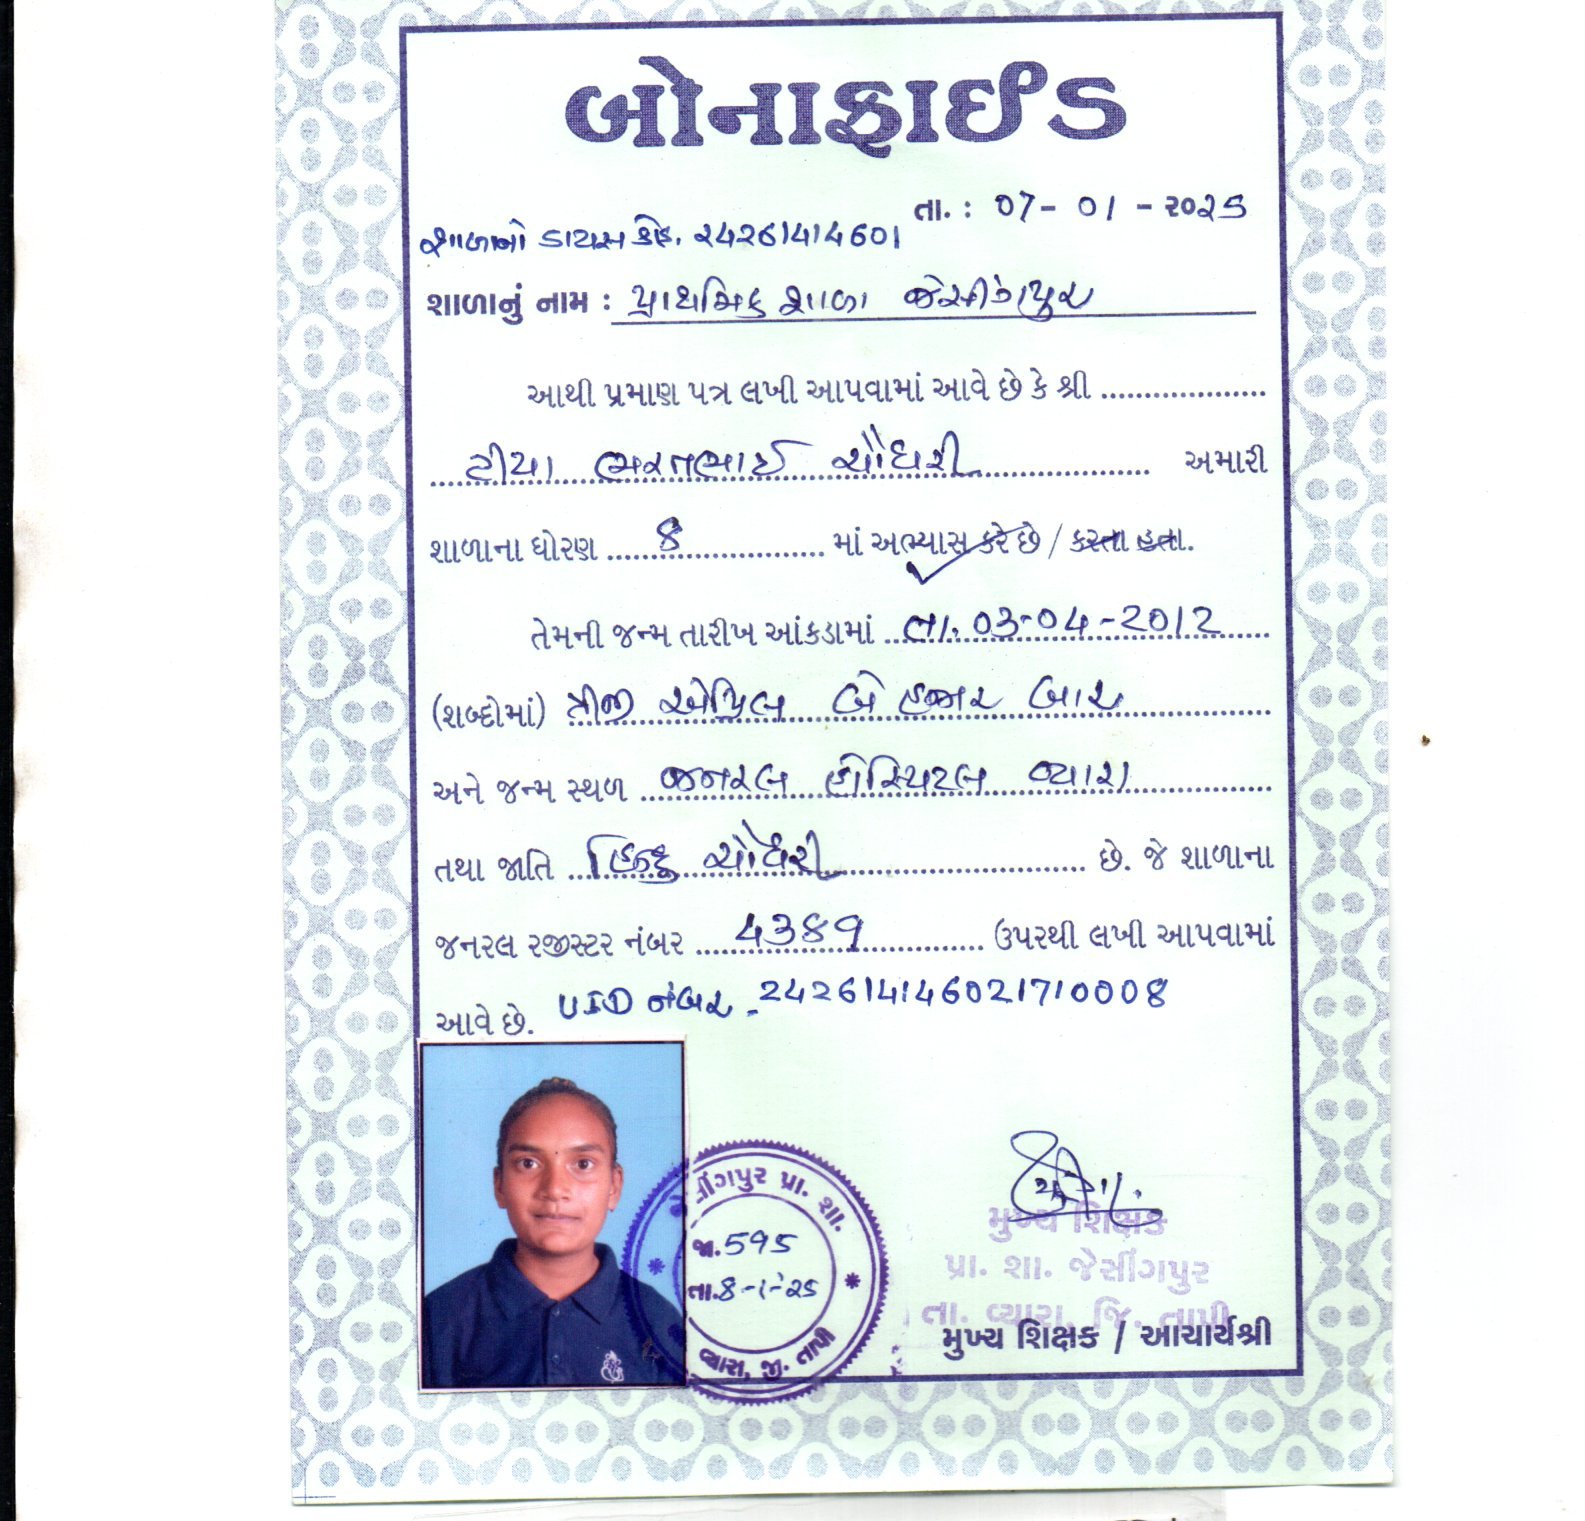 બોનાફાઈડ
તા. : 07 - 01 - ૨૦૨૫
શાળાનો ડાયસ કોડ. ૨4૨61414601
શાળાનું નામ : પ્રાથમિક શાળા જેસીંગપુર
આથી પ્રમાણ પત્ર લખી આપવામાં આવે છે કે શ્રી
ટીયા ભરતભાઈ ચૌધરી અમારી
શાળાના ધોરણ 8 માં અભ્યાસ કરે છે / કરતા હતા.
તેમની જન્મ તારીખ આંકડામાં તા. 03-04-2012
(શબ્દોમાં) ત્રીજી એપ્રિલ બે હજાર બાર
અને જન્મ સ્થળ જનરલ હોસ્પિટલ વ્યારા
તથા જાતિ હિન્દુ ચૌધરી છે. જે શાળાના
જનરલ રજીસ્ટર નંબર 4389 ઉપરથી લખી આપવામાં
આવે છે. UID નંબર - 242614146021710008
જેસીંગપુર પ્રા. શા.
જા. 595
તા. 8-1-'૨૫
વ્યારા, જી. તાપી
મુખ્ય શિક્ષક
પ્રા. શા. જેસીંગપુર
તા. વ્યારા, જિ. તાપી
મુખ્ય શિક્ષક / આચાર્યશ્રી